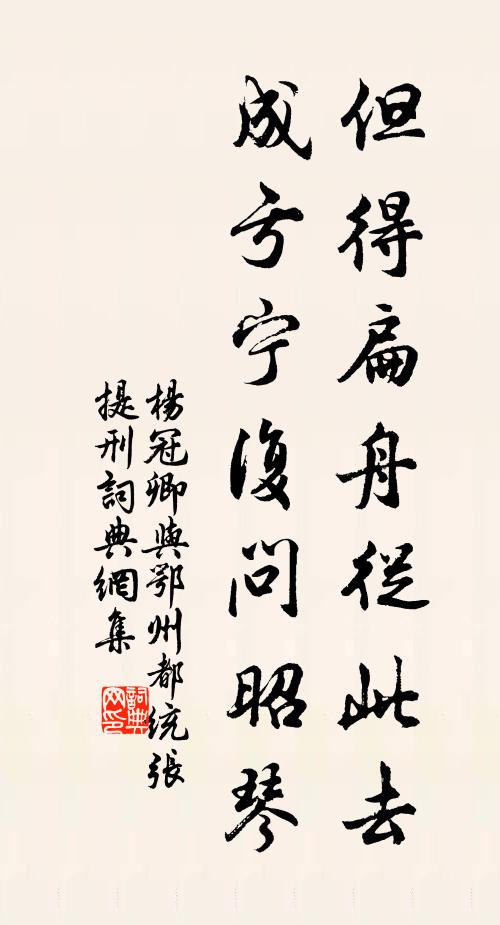 但得扁舟從此去
成亏宁復問昭琴
楊冠卿與鄂州都统張
提刑詞典網集
詞典
网印